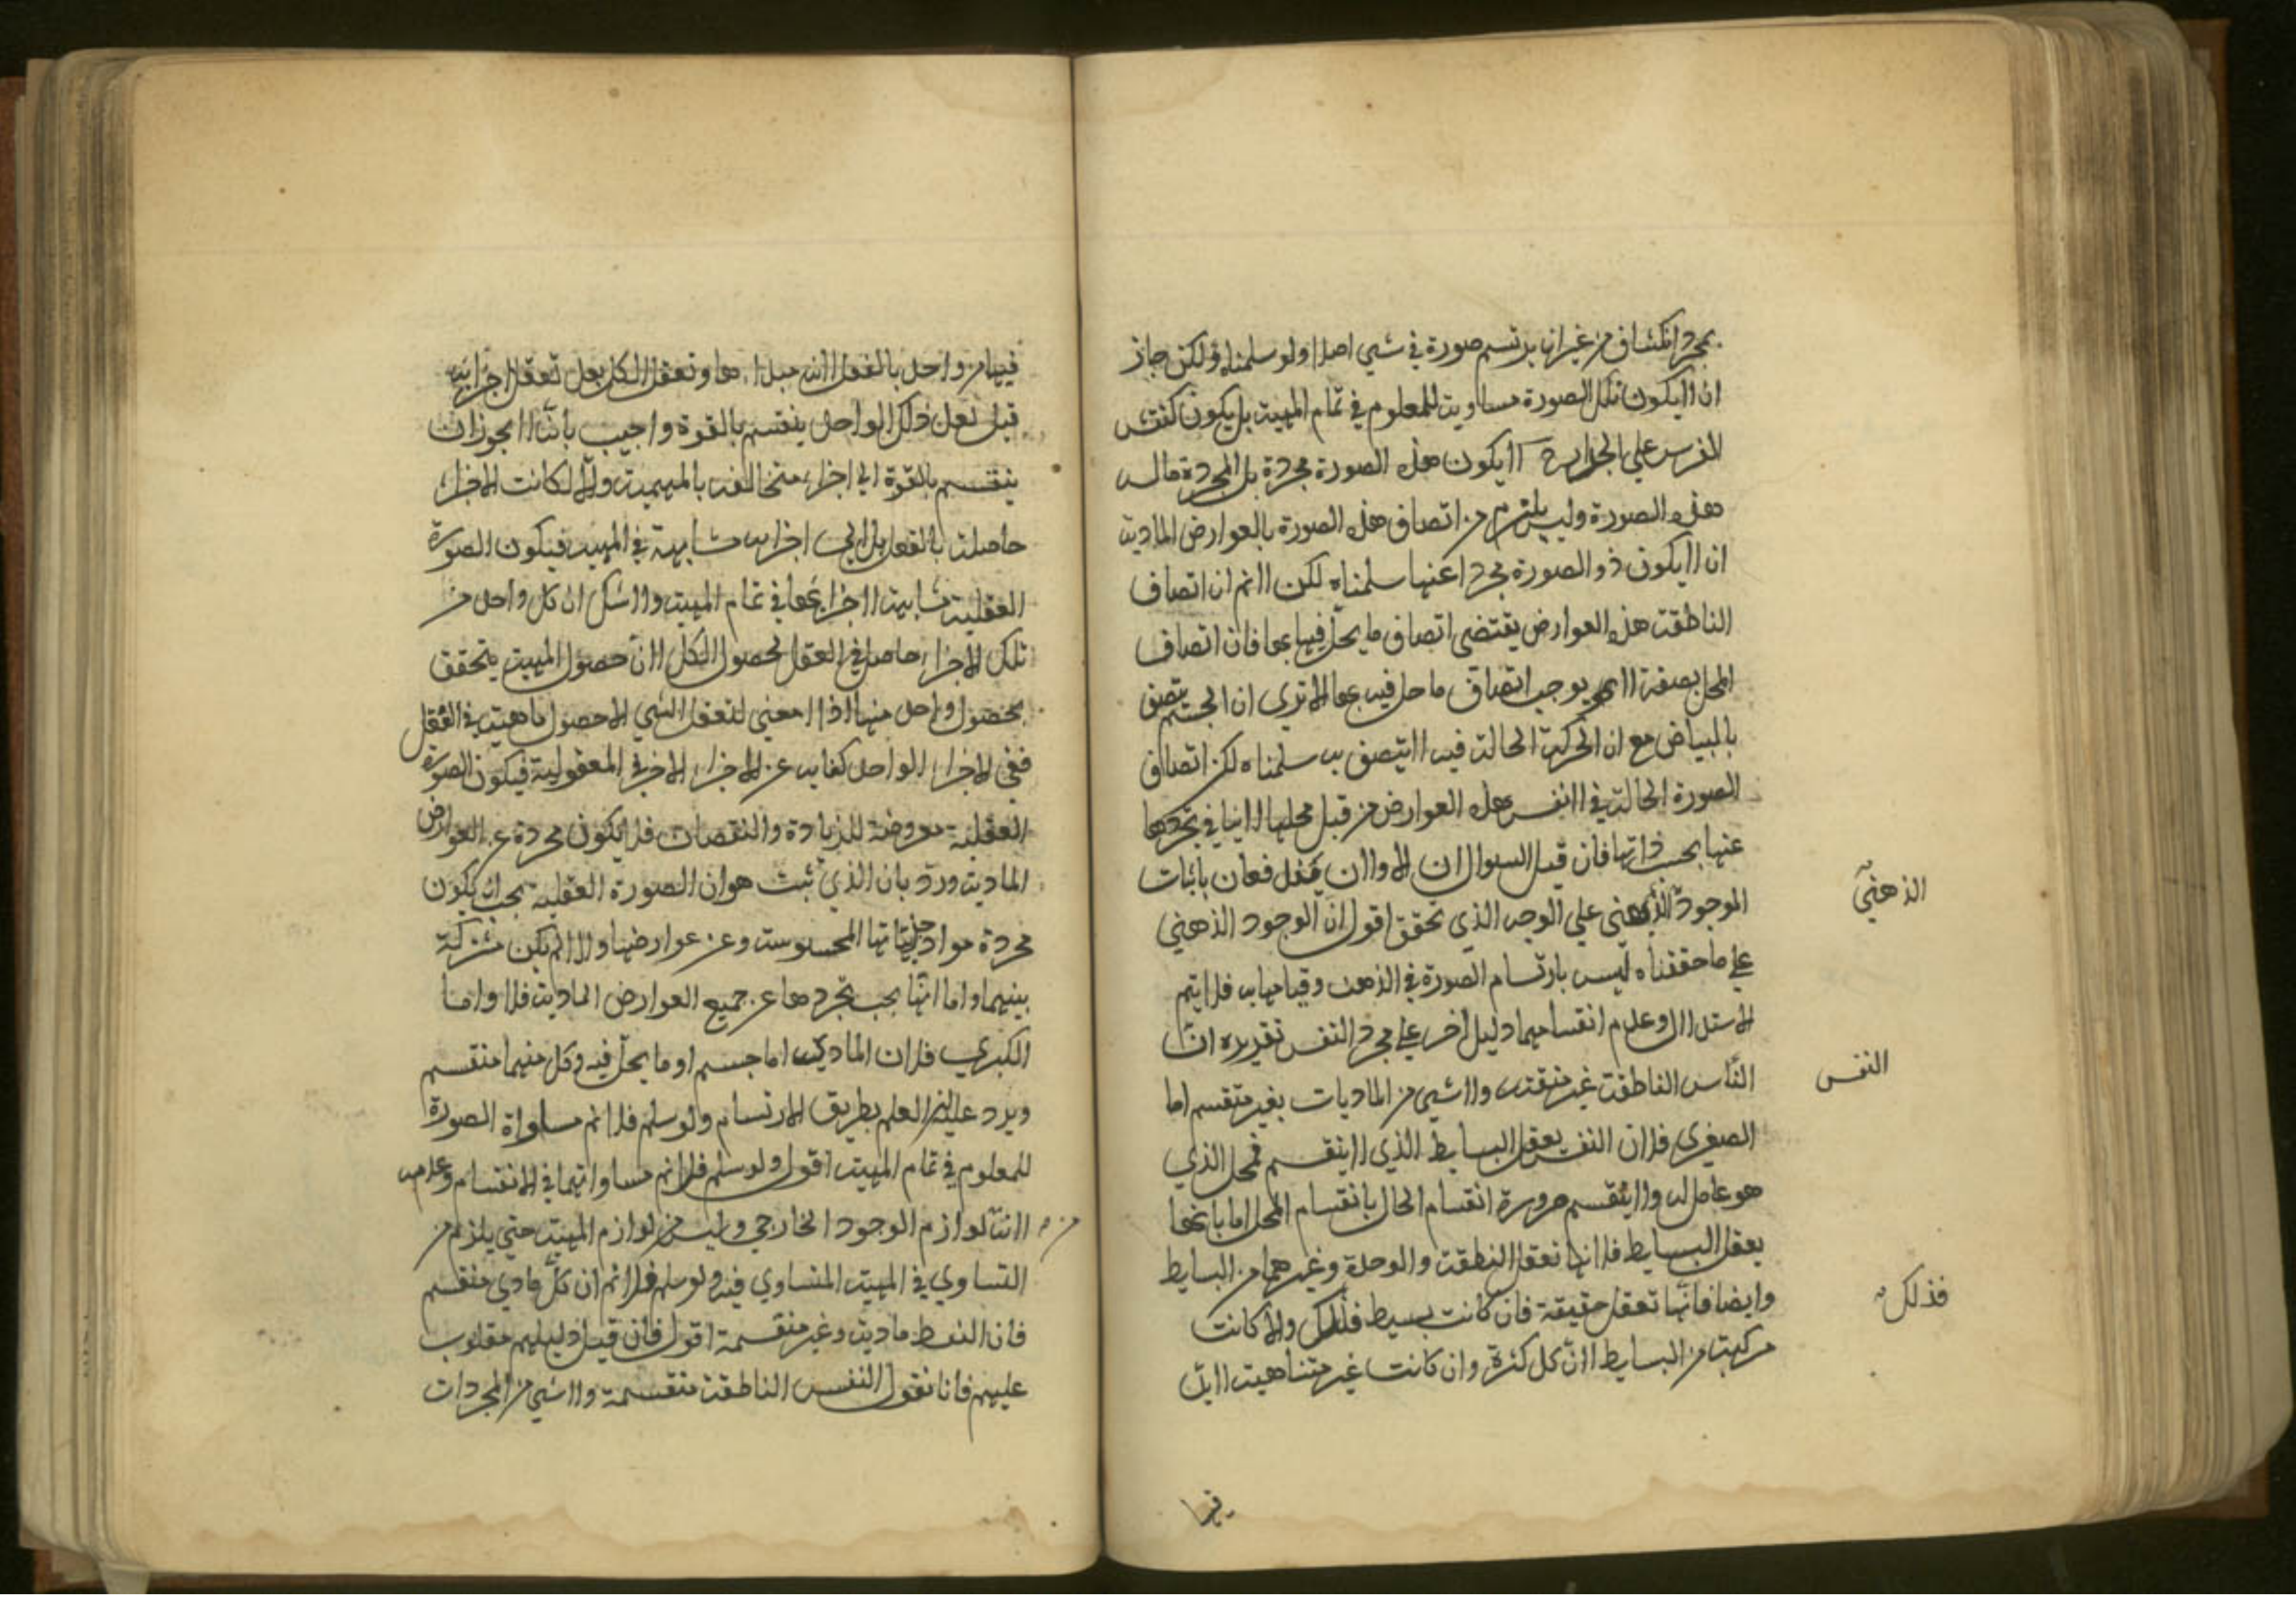 بمجرد انكشاف من غير ان يرتسم صورة في شي اصلا ولو سلمناه ولكن جاز
ان لايكون تلك الصورة مساوية للمعلوم في تمام المهية بل يكون كنقش
الفرس علي الجدار لايكون هذه الصورة مجردة بل المجردة ماله
هذه الصورة وليس يلزم من اتصاف هذه الصورة بالعوارض المادية
ان لايكون ذو الصورة مجردا عنها سلمناه لكن لانم ان اتصاف
الناطقة هذه العوارض يقتضي اتصاف ما يحل فيها بها فان اتصاف
المحل بصفة لا يوجب اتصاف ما حل فيه بها الا تري ان الجسم يتصف
بالبياض مع ان الحركة الحالة فيه لايتصف به سلمناه لكن اتصاف
الصورة الحالة في النفس هذه العوارض من قبل محلها لاينافي تجردها
عنها بحسب ذاتها فان قيل السوالان الاولان مندفعان باثبات
الموجود الذهني علي الوجه الذي تحقق اقول ان الوجود الذهني
الذهني
علي ما حققناه ليس بارتسام الصورة في الذهن وقيامها به فلا يتم
الاستدلال وعدم انقسامها دليل اخر علي تجرد النفس تقريره ان
الناس الناطقة غير منقسمة ولا شي من الماديات بغير منقسم اما
النفس
الصغري فلان النفس يعقل البسايط الذي لاينقسم فمحل الذي
هو عاصل له ولاينقسم ضرورة انقسام الحال بانقسام المحل اما بانها
يعقل البسايط فلانها تعقل النطقة والوحدة وغيرهما من البسايط
وايضا فانها تعقل حقيقة فان كانت بسيط فذلك والا كانت
فذلك
مركبة من البسايط لان كل كثرة وان كانت غير متناهية لابد
فيها
فيها من واحد بالفعل لانه مبداها وتعقل الكل بعد تعقل اجزايه
قيل لعل ذلك الواحد ينقسم بالقوة واجيب بانه لايجوز ان
ينقسم بالقوة الي اجزاء متخالفة بالمهية والا لكانت الاجزاء
حاصلة بالفعل بل الي اجزاء متشابهة في المهية فيكون الصورة
العقلية متشابهة لاجزايها في تمام المهية ولاشك ان كل واحد من
تلك الاجزاء حاصل في العقل لحصول الكل لان حصول المهية يتحقق
بحصول واحد منها اذ لا معني لتعقل الشي الا حصول ماهيته في العقل
ففي الاجزاء الواحد كفاية عن الاجزاء الاخر في المعقولية فيكون الصورة
العقلية معروضة للزيادة والنقصان فلايكون مجردة عن العوارض
المادية ورد بان الذي ثبت هو ان الصورة العقلية يجب ان يكون
مجردة مواد جزئياتها المحسوسة وعن عوارضها والا لم يكن مشتركة
بينهما واما انها يجب تجردها عن جميع العوارض المادية فلا واما
الكبري فلان المادي اما جسم او ما يحل فيه وكل منهما منقسم
ويرد عليه العلم بطريق الارتسام ولو سلم فلا نم مساواة الصورة
للمعلوم في تمام المهية اقول ولو سلم فلا نم مساواتهما في الانقسام وعدمه
لانه لوازم الوجود الخارجي وليس من لوازم المهية حتي يلزم من
من
التساوي في المهية المتساوي فيه ولو سلم فلا نم ان كل مادي منقسم
فان النقط مادية وغير منقسمة اقول فان قيل دليلهم مقلوب
عليهم فانا نقول النفس الناطقة منقسمة ولا شي من المجردات